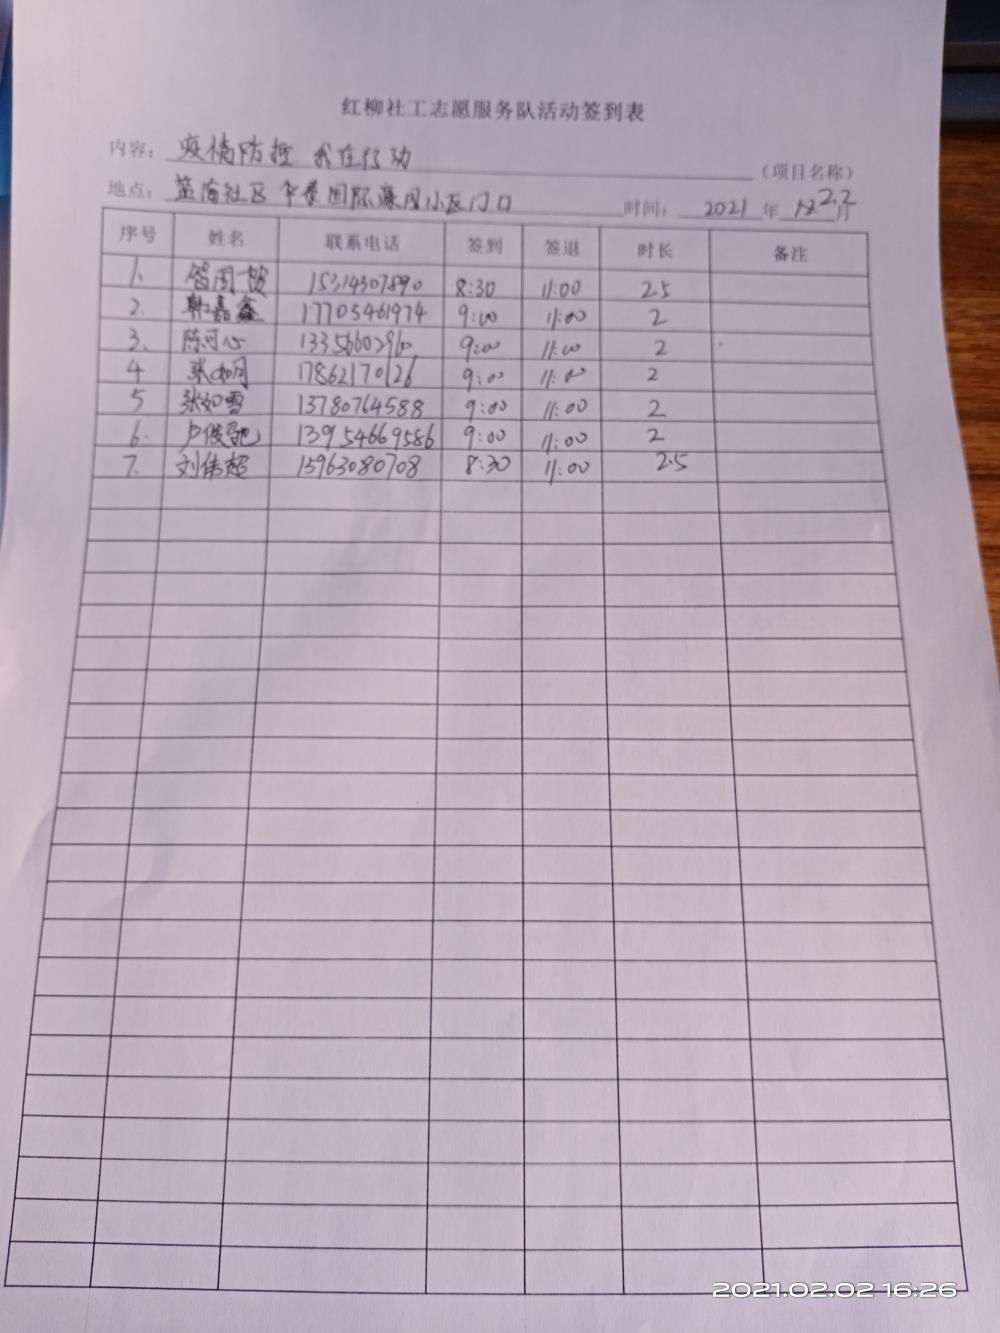 红柳社工志愿服务队活动签到表
内容：疫情防控 我在行动 （项目名称）
地点：蓝海社区 华泰国际康园小区门口 时间：2021年 2.2月
序号 姓名 联系电话 签到 签退 时长 备注
1. 15314307890 8:30 11:00 2.5
2. 韩嘉鑫 17705461974 9:00 11:00 2
3. 陈可心 9:00 11:00 2
4 张如月 17862170126 9:00 11:00 2
5 张如雪 13780764588 9:00 11:00 2
6. 卢俊驰 13954669586 9:00 11:00 2
7. 刘伟超 13963080708 8:30 11:00 2.5
2021.02.02 16:26